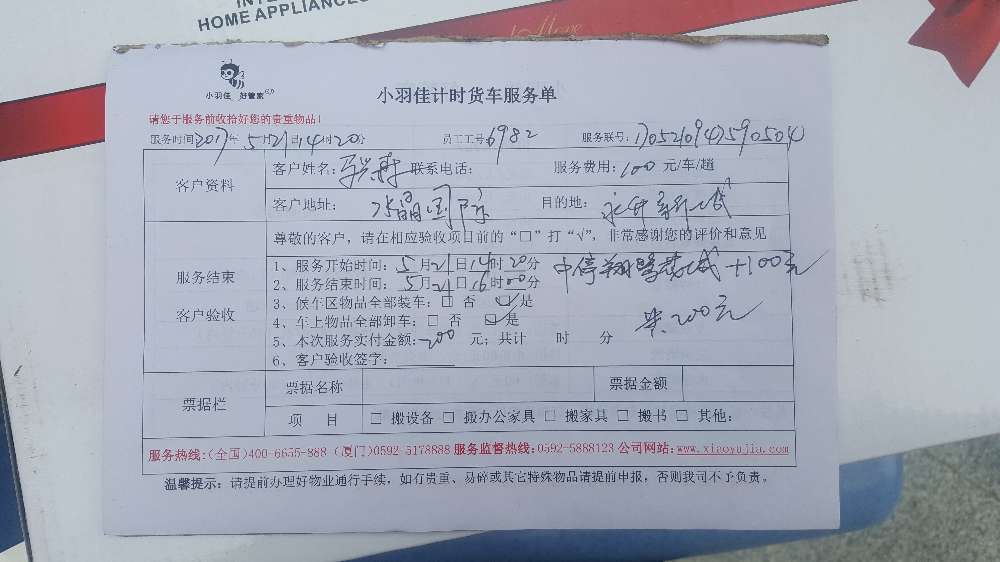 HOME APPLIANCES
小羽佳 好管家
小羽佳计时货车服务单
请您于服务前收拾好您的贵重物品!
服务时间2017年5月21日14时20分 员工工号6982 服务联号:1705210947590504
客户资料 客户姓名: 联系电话: 服务费用:100元/车/趟
客户地址: 水晶国际 目的地: 永升新城
尊敬的客户,请在相应验收项目前的“□”打“√”,非常感谢您的评价和意见
服务结束
客户验收
1、服务开始时间:5月21日14时20分 中停 +100元
2、服务结束时间:5月21日16时00分
3、候车区物品全部装车:□ 否 ☑是
4、车上物品全部卸车:□ 否 ☑是 共200元
5、本次服务实付金额:200元;共计 时 分
6、客户验收签字:
票据栏 票据名称 票据金额
项 目 □ 搬设备 □ 搬办公家具 □ 搬家具 □ 搬书 □ 其他:
服务热线:(全国)400-6655-888 (厦门)0592-5178888 服务监督热线:0592-5888123 公司网站:www.xiaoyujia.com
温馨提示:请提前办理好物业通行手续,如有贵重、易碎或其它特殊物品请提前申报,否则我司不予负责。